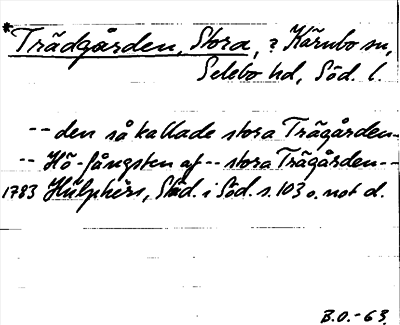 *Trädgården, Stora, ? Kärnbo sn,
Selebo hd, Söd. l.
-- den så kallade stora Trägården--
-- Hö-fångsten af -- stora Trägården --
1783 Hülphers, Städ. i Söd. s. 103 o. not d.
B.O. -63.